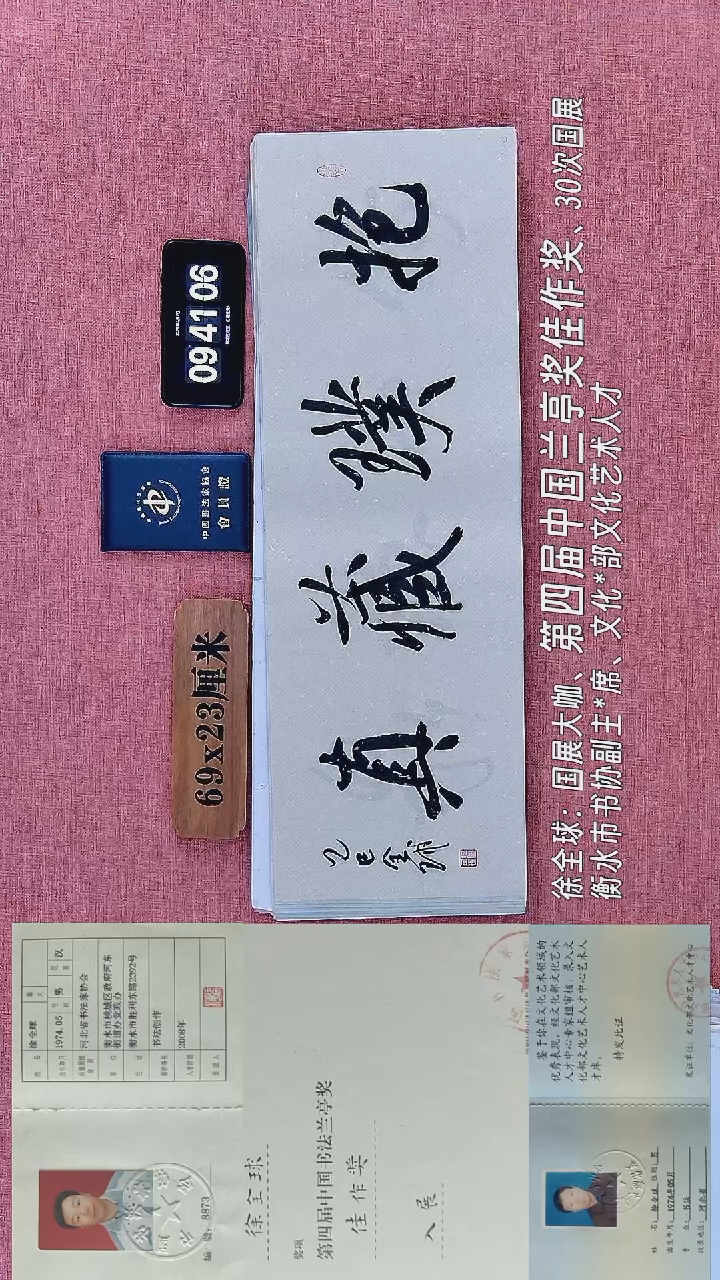 69x23厘米
中国书法家协会
會員證
09 41 06
抱璞藏真
乙巳全球
徐全球：国展大咖、第四届中国兰亭奖佳作奖、30次国展
衡水市书协副主*席、文化*部文化艺术人才
徐全球
1974.05
男
汉
河北省书法家协会
衡水市桃城区政府河东
街道办党政办
衡水市胜利东路2292号
书法创作
2008年
编号: 8873
徐全球
奖项
第四届中国书法兰亭奖
佳作奖
入展
鉴于你在文化艺术领域的
优秀表现，经文化部文化艺术
人才中心专家组审核，录入文
化部文化艺术人才中心艺术人
才库。
特发此证
发证单位：文化部文化艺术人才中心
姓名：徐全球 性别：男
出生年月：1974年05月
专业：书法